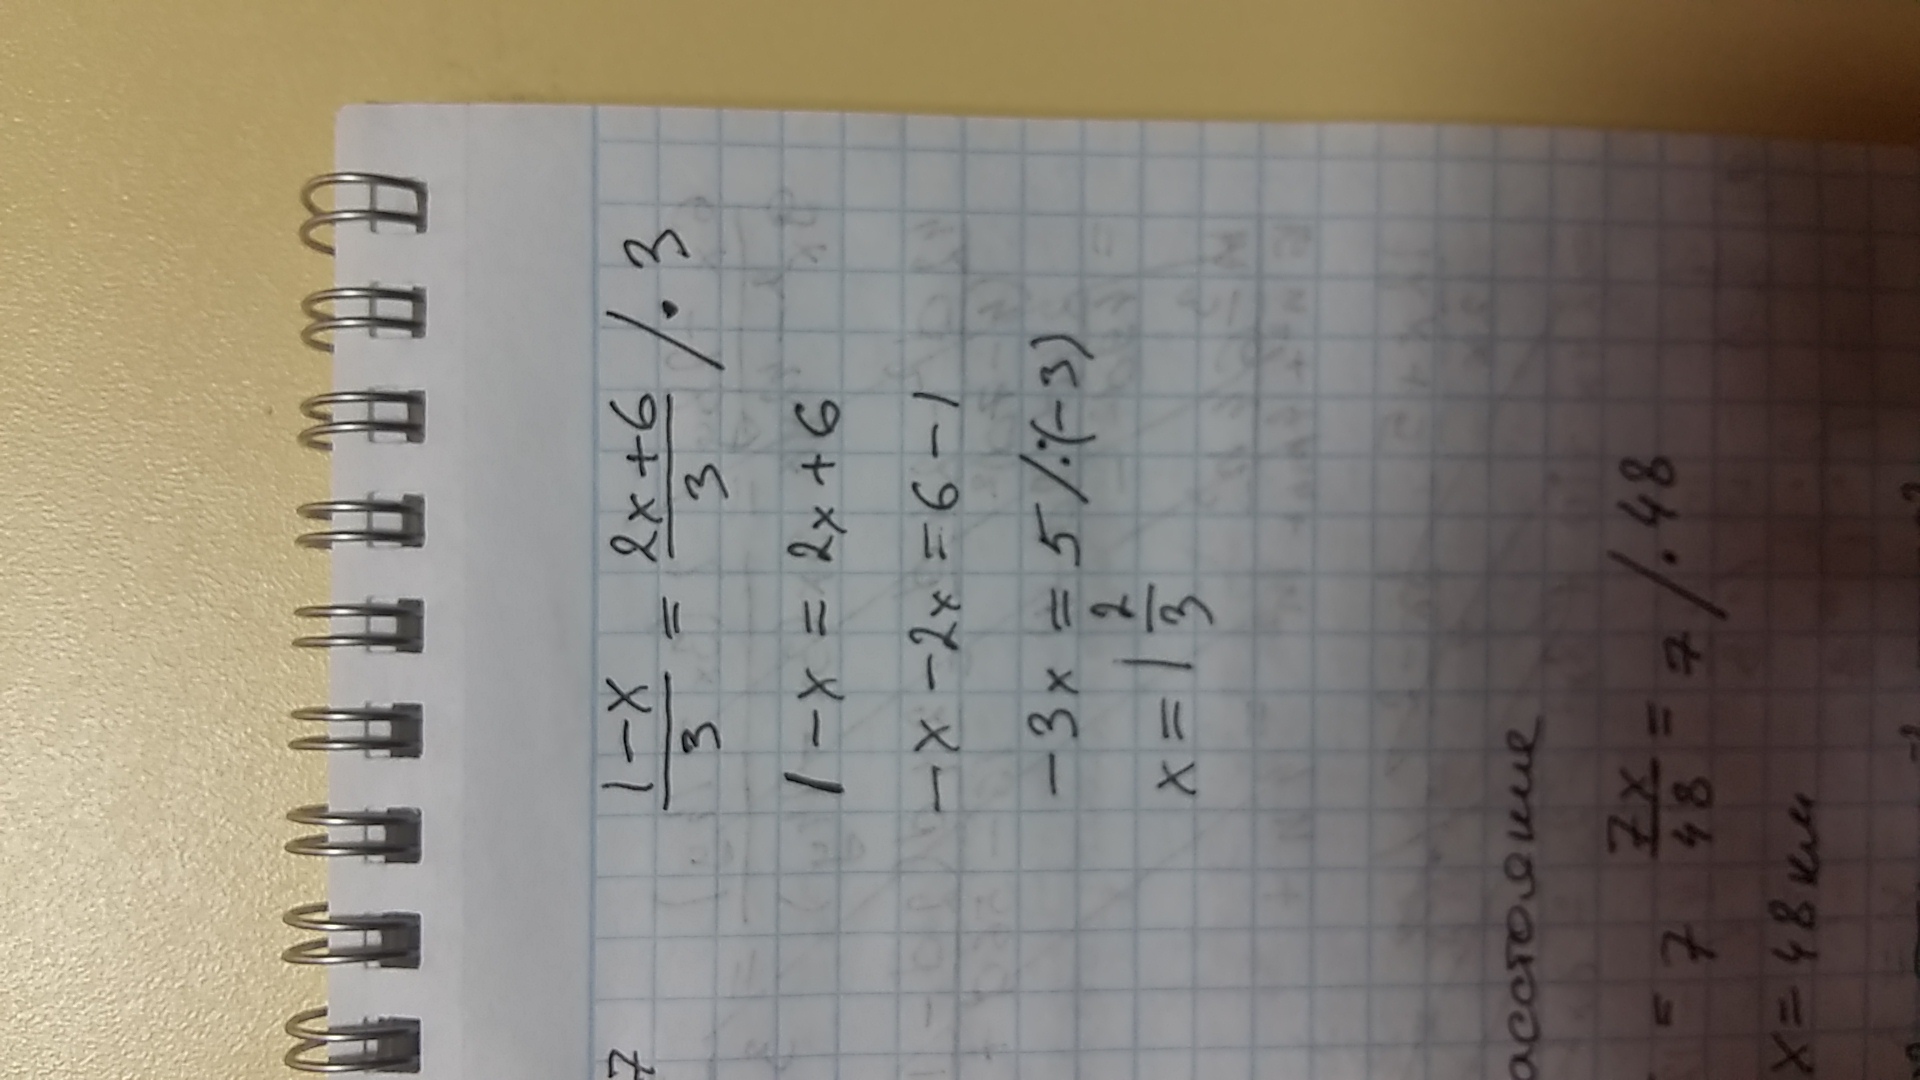 (1-x)/3 = (2x+6)/3 /·3
1-x=2x+6
-x-2x=6-1
-3x=5/:(-3)
x=1 2/3
7
асстояние
= 7 7x/48=7/·48
x=48км